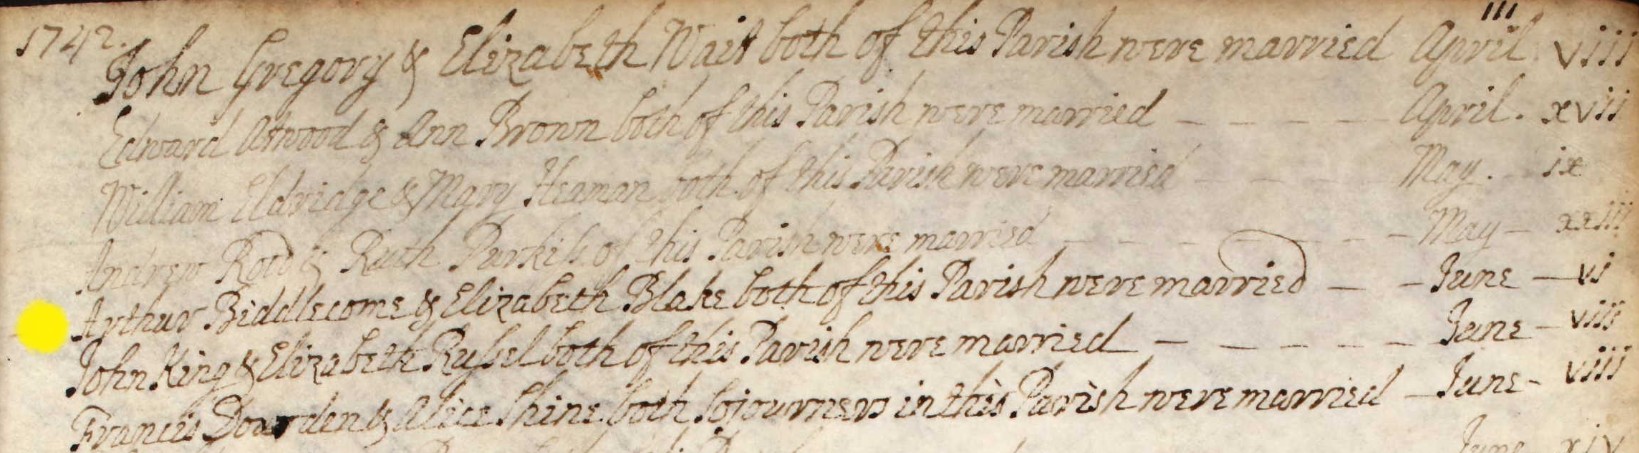 111
1742. John Gregory & Elizabeth Wait both of this Parish were married April viii
Edward Atwood & Ann Brown both of this Parish were married - - - - - April. xvii
William Eldridge & Mary Heaman both of this Parish were married - - - - May. ix
Andrew Rowd & Ruth Purkis of this Parish were married - - - - - - May - xxiii
Arthur Biddlecome & Elizabeth Blake both of this Parish were married - - - June - vi
John King & Elizabeth Russel both of this Parish were married - - - - - June - viii
Francis Dowden & Alice Shine both Sojourners in this Parish were married - June - viii
June xiv